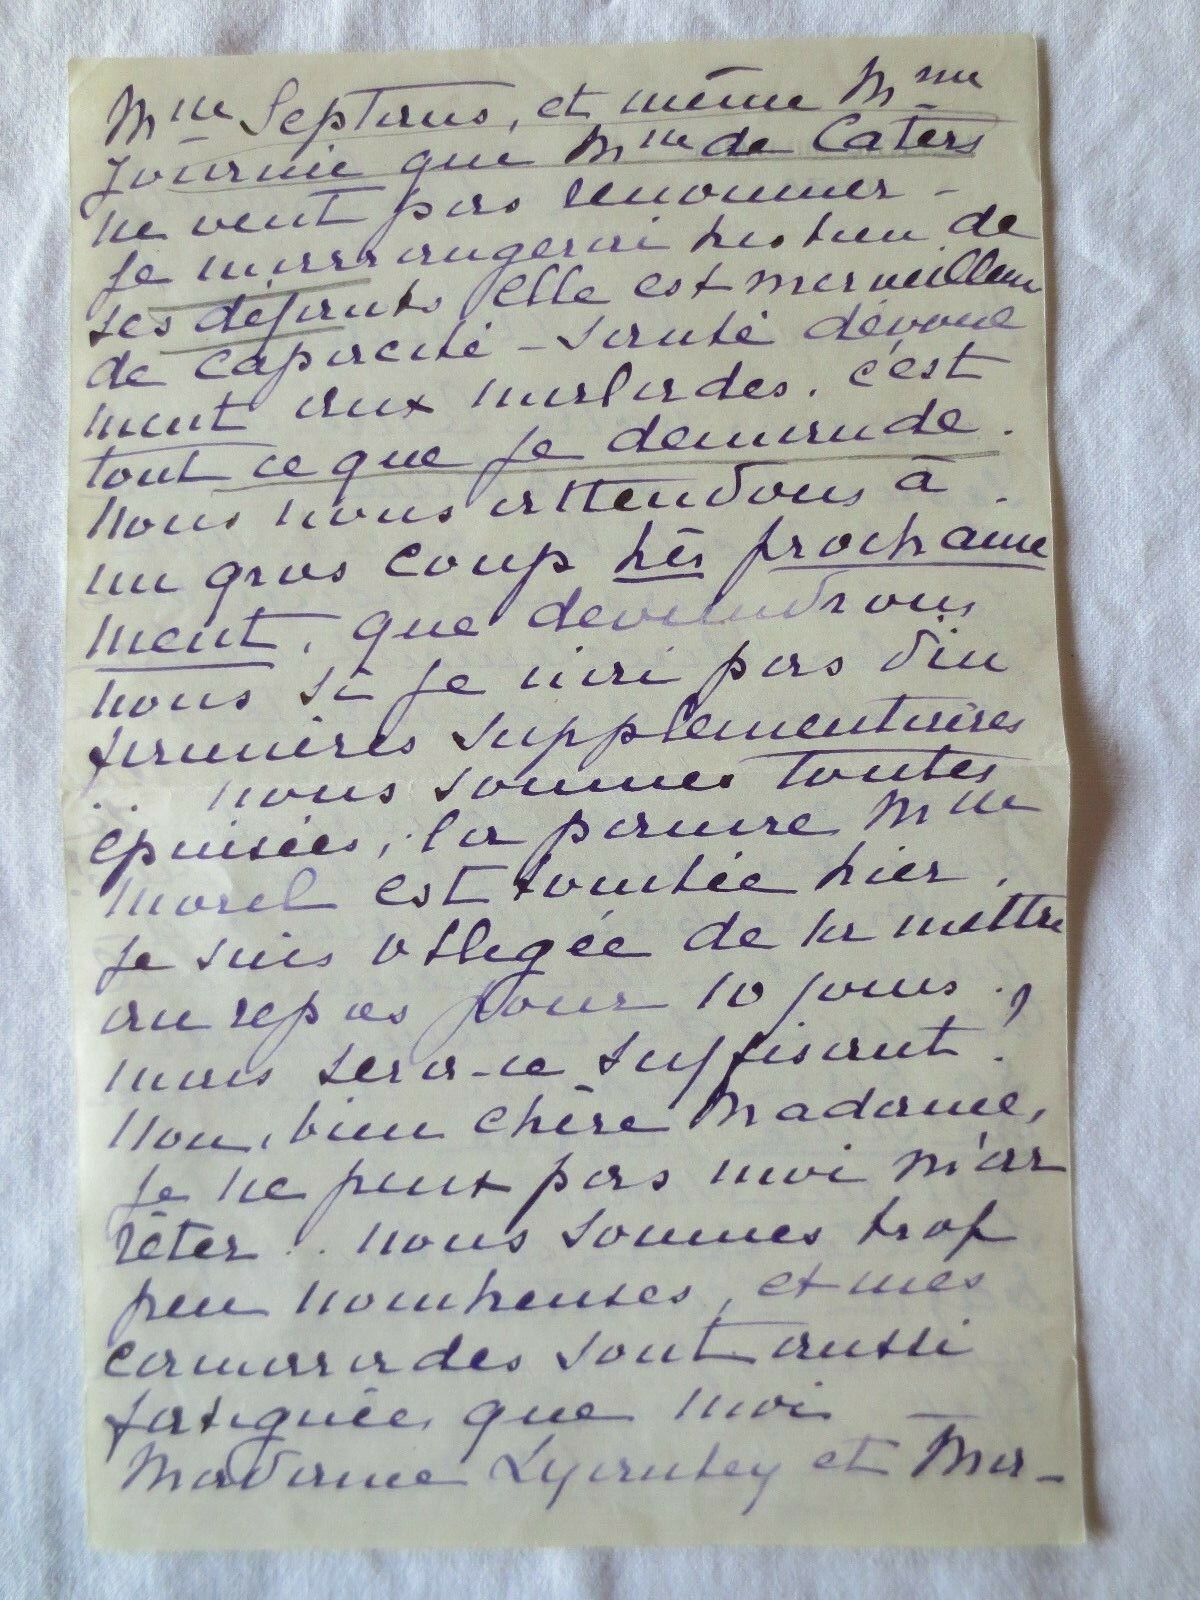 Mme Septans, et même Mme
Journie que Mme de Caters
ne veut pas renommer -
je m'arrangerai très bien de
ses défauts elle est merveilleuse
de capacité - santé dévoue
ment aux malades. c'est
tout ce que je demande.
Nous nous attendons à
un gros coup très prochaine
ment, que deviendrons
nous si je n'ai pas d'in
firmières supplementaires
.. nous sommes toutes
épuisées, la pauvre Mme
Morel est tombée hier.
je suis obligée de la mettre
au repos pour 10 jours.
mais sera-ce suffisant?
Non, bien chère Madame,
je ne peux pas moi m'ar
rêter .. nous sommes trop
peu nombreuses, et mes
camarades sont aussi
fatiguées que moi
Madame et Ma-